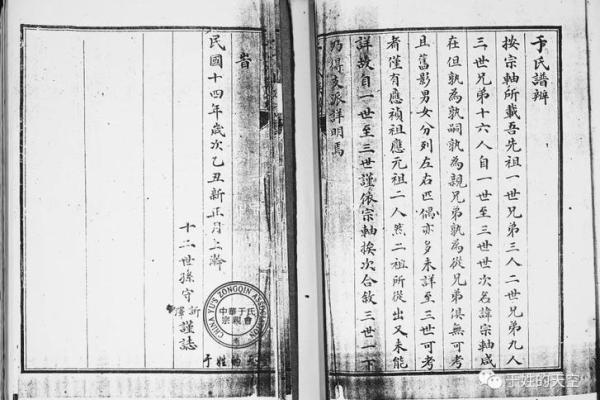 于氏譜辨
按宗軸所載吾先祖一世兄弟三人二世兄弟九人
三世兄弟十六人自一世至三世世次名諱宗軸咸
在但孰為孰嗣孰為親兄弟孰為從兄弟俱無可考
且舊影男女分列左右匹偶亦多未詳至三世可考
者僅有應禎祖應元祖二人然二祖所從出又未能
詳故自一世至三世謹依宗軸挨次合敘三世一下
乃得支派詳明焉
旹
民國十四年歲次乙丑新正月上澣
十二世孫守
新
謹誌
CHINA YU'S ZONGQIN ASSOCIATION
中華于氏
宗親會
于姓的天空